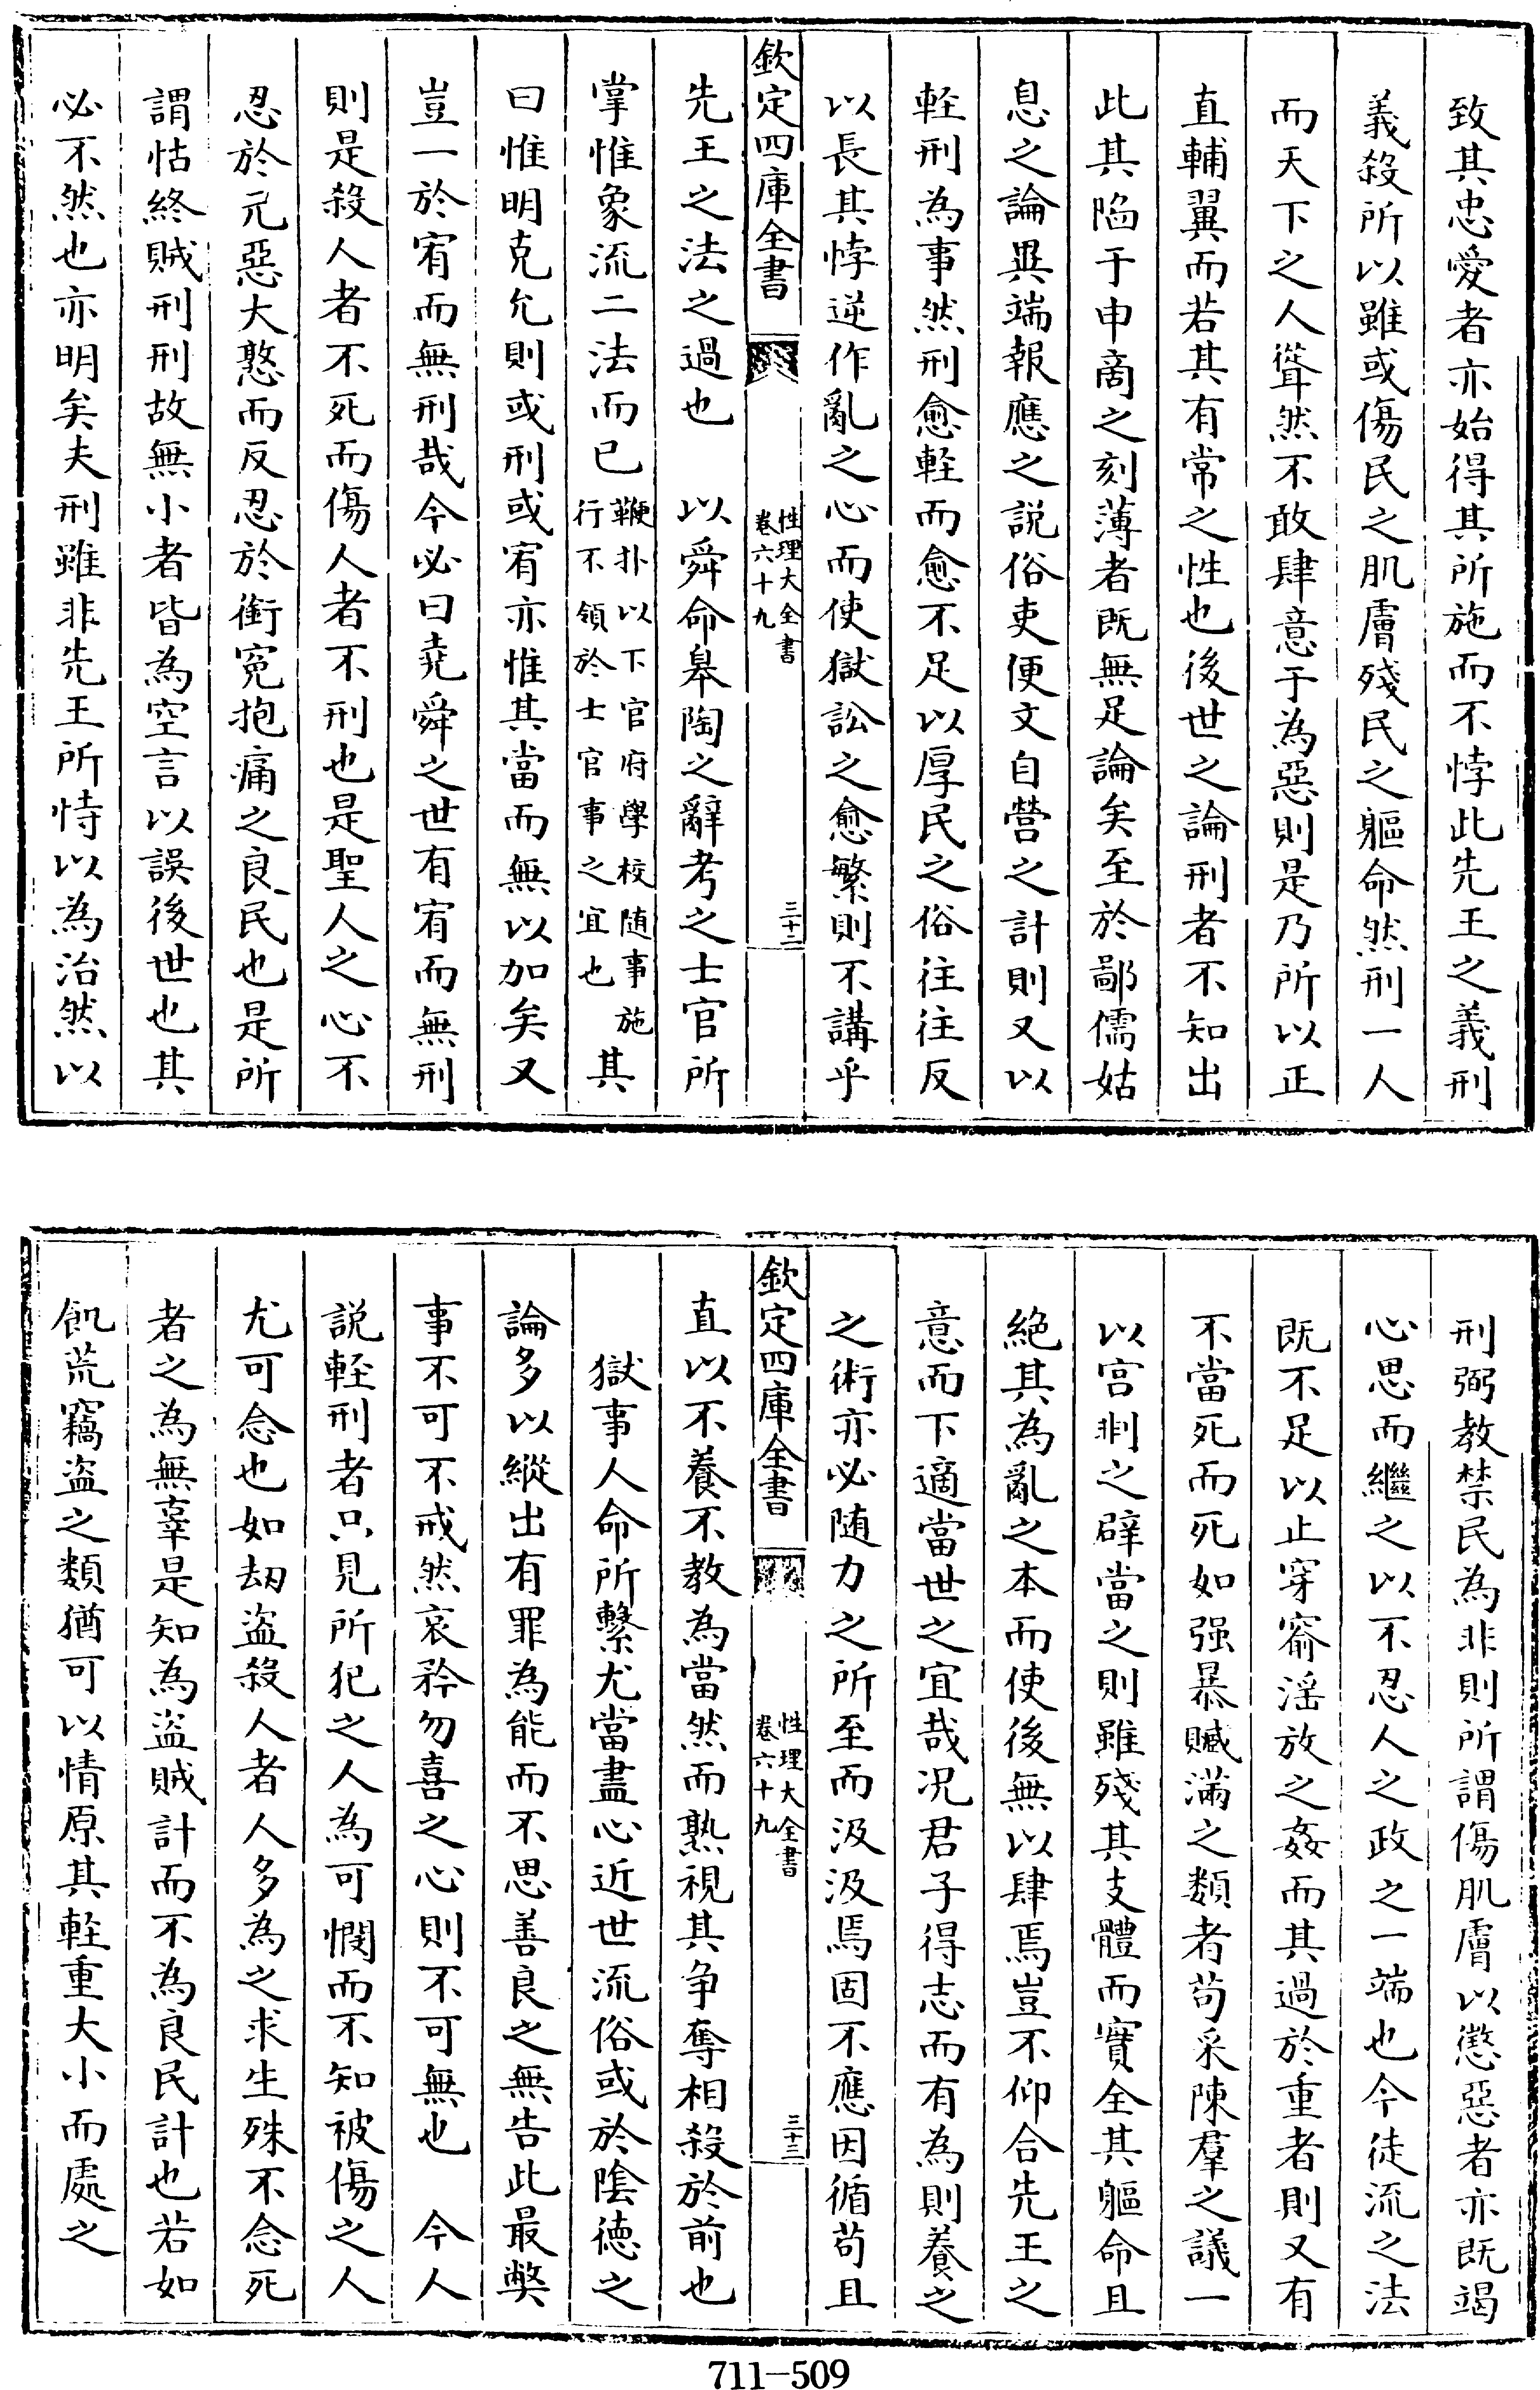 致其忠愛者亦始得其所施而不悖此先王之義刑
義殺所以雖或傷民之肌膚殘民之軀命然刑一人
而天下之人聳然不敢肆意于為惡則是乃所以正
直輔翼而若其有常之性也後世之論刑者不知出
此其陷于申商之刻薄者既無足論矣至於鄙儒姑
息之論異端報應之説俗吏便文自營之計則又以
軽刑為事然刑愈軽而愈不足以厚民之俗往往反
以長其悖逆作亂之心而使獄訟之愈繁則不講乎
欽定四庫全書
性理大全書
卷六十九
三十二
先王之法之過也　以舜命臯陶之辭考之士官所
掌惟象流二法而已鞭扑以下官府學校随事施
行不領於士官事之宜也其
曰惟明克允則或刑或宥亦惟其當而無以加矣又
豈一於宥而無刑哉今必曰堯舜之世有宥而無刑
則是殺人者不死而傷人者不刑也是聖人之心不
忍於元惡大憝而反忍於銜冤抱痛之良民也是所
謂怙終賊刑刑故無小者皆為空言以誤後世也其
必不然也亦明矣夫刑雖非先王所恃以為治然以
刑弼教禁民為非則所謂傷肌膚以懲惡者亦既竭
心思而繼之以不忍人之政之一端也今徒流之法
既不足以止穿窬淫放之姦而其過於重者則又有
不當死而死如强暴贓滿之類者苟采陳羣之議一
以宫剕之辟當之則雖殘其支體而實全其軀命且
絶其為亂之本而使後無以肆焉豈不仰合先王之
意而下適當世之宜哉况君子得志而有為則養之
之術亦必随力之所至而汲汲焉固不應因循苟且
欽定四庫全書
性理大全書
卷六十九
三十三
直以不養不教為當然而熟視其争奪相殺於前也
獄事人命所繫尤當盡心近世流俗或於陰徳之
論多以縱出有罪為能而不思善良之無告此最獘
事不可不戒然哀矜勿喜之心則不可無也　今人
説軽刑者只見所犯之人為可憫而不知被傷之人
尤可念也如刼盗殺人者人多為之求生殊不念死
者之為無辜是知為盗賊計而不為良民計也若如
飢荒竊盗之類猶可以情原其軽重大小而處之
711-509